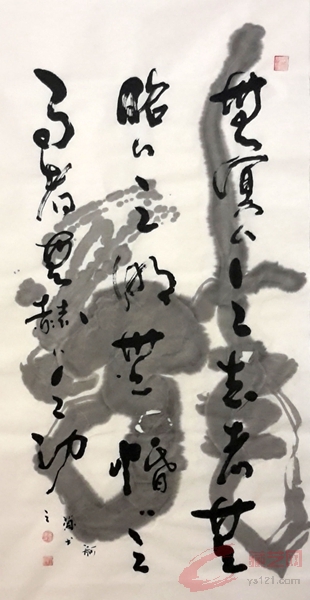 無冥〻之志者無
昭〻之明無惛〻之
事者無赫〻之功
ya121.com